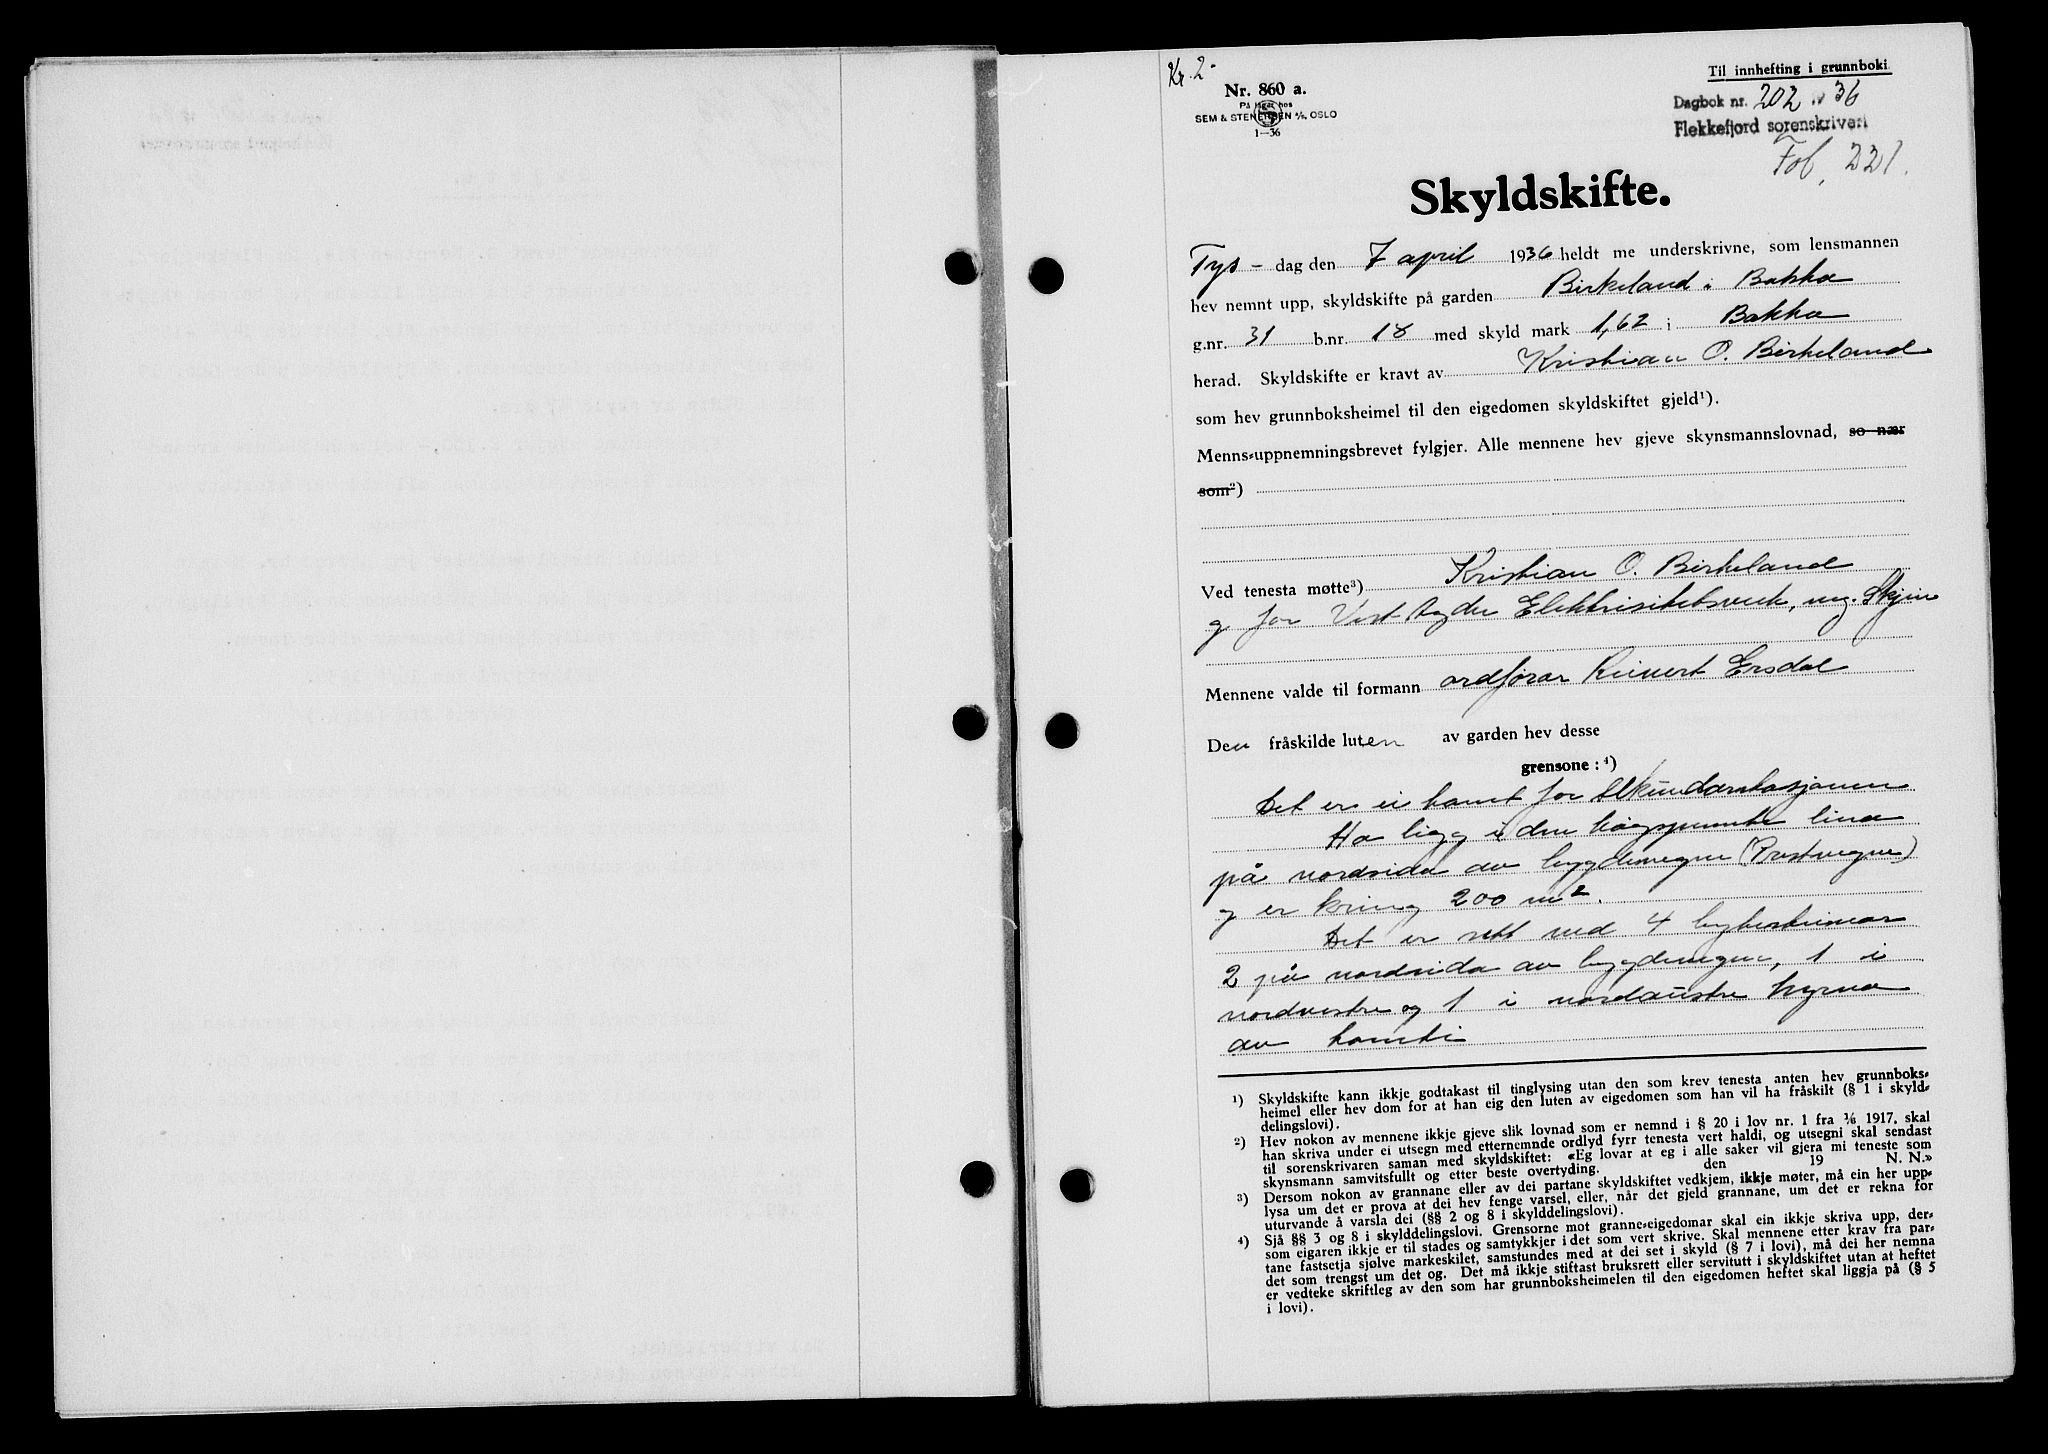 Kr. 2-
Nr. 860 a.
På lager hos
SEM & STENERSEN A/S, OSLO
1—36
Til innhefting i grunnboki
Dagbok nr. 202 1936
Flekkefjord sorenskriveri
Fol. 221.
Skyldskifte.
Tys - dag den 7 april 1936 heldt me underskrivne, som lensmannen
hev nemnt upp, skyldskifte på garden Birkeland i Bakke
g.nr. 31 b.nr. 18 med skyld mark 1,62 i Bakke
herad. Skyldskifte er kravt av Kristian O. Birkeland
som hev grunnboksheimel til den eigedomen skyldskiftet gjeld¹).
Menns-uppnemningsbrevet fylgjer. Alle mennene hev gjeve skynsmannslovnad, so nær
som²)
Ved tenesta møtte³) Kristian O. Birkeland
og for Vest Agder Elektrisitetsverk, ing. Skjen
Mennene valde til formann ordførar Reinert Ersdal
Den fråskilde luten av garden hev desse
grensone: ⁴)
Det er ei tomt for
Ho ligg i den høgspente lina
på nordsida av bygdevegen (Postvegen)
og er kring 200 m².
Det er sett ned 4 byteshimar
2 på nordsida av bygdevegen, 1 i
nordvestre og 1 i nordaustre hyrna
av tomti
¹) Skyldskifte kann ikkje godtakast til tinglysing utan den som krev tenesta anten hev grunnboks-
heimel eller hev dom for at han eig den luten av eigedomen som han vil ha fråskilt (§ 1 i skyld-
delingslovi).
²) Hev nokon av mennene ikkje gjeve slik lovnad som er nemnd i § 20 i lov nr. 1 fra 1/6 1917, skal
han skriva under ei utsegn med etternemnde ordlyd fyrr tenesta vert haldi, og utsegni skal sendast
til sorenskrivaren saman med skyldskiftet: «Eg lovar at eg i alle saker vil gjera mi teneste som
skynsmann samvitsfullt og etter beste overtyding. den 19 N. N.»
³) Dersom nokon av grannane eller av dei partane skyldskiftet vedkjem, ikkje møter, må ein her upp-
lysa um det er prova at dei hev fenge varsel, eller, når det gjeld grannane, um det er rekna for
uturvande å varsla dei (§§ 2 og 8 i skylddelingslovi).
⁴) Sjå §§ 3 og 8 i skylddelingslovi. Grensorne mot granne-eigedomar skal ein ikkje skriva upp, der-
som eigaren ikkje er til stades og samtykkjer i det som vert skrive. Skal mennene etter krav fra par-
tane fastsetja sjølve markeskilet, samstundes med at dei set i skyld (§ 7 i lovi), må dei her nemna
det som trengst um det og. Det må ikkje stiftast bruksrett eller servitutt i skyldskiftet utan at heftet
er vedteke skriftleg av den som har grunnboksheimelen til den eigedomen heftet skal liggja på (§ 5
i lovi).